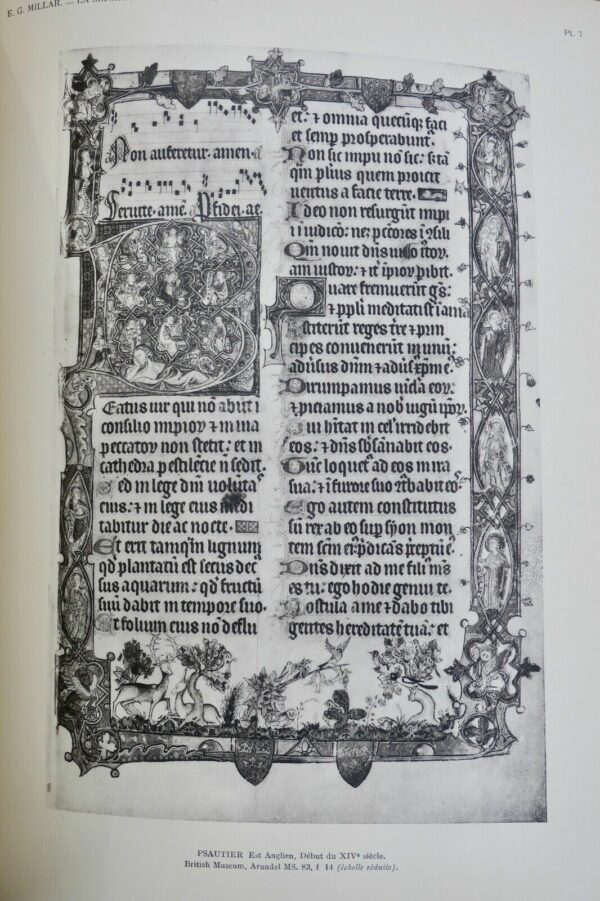 E. G. MILLAR. — LA
Pl. 7
Non auferetur. amen.
Servite. ame. Psidei. ae.
Eatus vir qui nō abiit ī
consilio impioꝝ ⁊ in uia
peccatoꝝ non stetit: et in
cathedra pestilēcie ñ sedit.
Sed in lege dn̄i volūtas
eius: ⁊ in lege eius medi
tabitur die ac nocte.
Et erit tamq̄m lignum
qd̄ plantatū est secus dec
sus aquarum: qd̄ fructū
suū dabit in tempore suo.
Et folium eius nō deflu
et: ⁊ omnia quecūq; faci
et semp prosperabunt.
Non sic impii nō sic: s; tā
q̄m puluis quem proicit
uentus a facie terre.
Ideo non resurgūt impii
ī iudicio: ne; pctores ī cōsili
Qm̄ nouit dn̄s
am iustoꝝ: ⁊ it̄ īpioꝝ pibit.
Quare fremuerūt gēs:
⁊ ppl̄i meditati st̄ īania
Astiterūt reges tr̄e ⁊ prin
cipes conuenerūt in unū:
adūsus dn̄m ⁊ adūs xp̄m eī.
Dirumpamus uīcla eoꝝ:
⁊ piciamus a nob̄ iugū ip̄oꝝ.
Qui hītat in cel̄ irridebit
eos: ⁊ dn̄s sb̄sānabit eos.
Tūc loquet̄ ad eos in ira
sua: ⁊ ī furore suo ꝯt̄babit eos.
Ego autem constitutus
sū rex ab eo sup syon mon
tem scm̄ eī: p̄dicās p̄ceptū eī.
Dn̄s dixit ad me fili' m̄s
es tu: ego hodie genui te.
Postula a me ⁊ dabo tibi
gentes hereditatē tuā: et
PSAUTIER Est Anglien, Début du XIVe siècle.
British Museum, Arundel MS. 83, f 14 (échelle réduite).